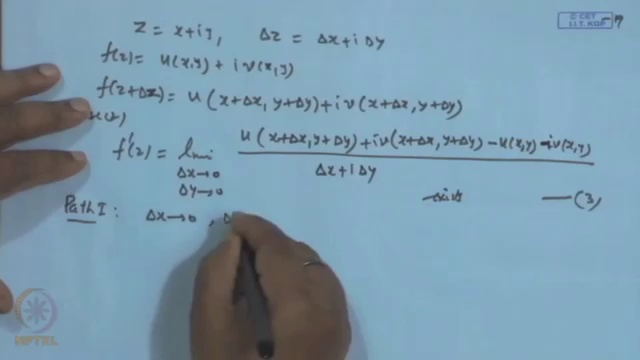 © CET
I.I.T. KGP
Z = x+iy, Δz = Δx+iΔy
f(z) = u(x,y) + i v(x,y)
f(z+Δz) = u(x+Δx, y+Δy) + i v(x+Δx, y+Δy)
f'(z) = lim Δx→0 Δy→0 u(x+Δx, y+Δy) + iv(x+Δx, y+Δy) − u(x,y) − iv(x,y) / Δx+iΔy
exists —(3)
Path I: Δx→0, Δ
NPTEL